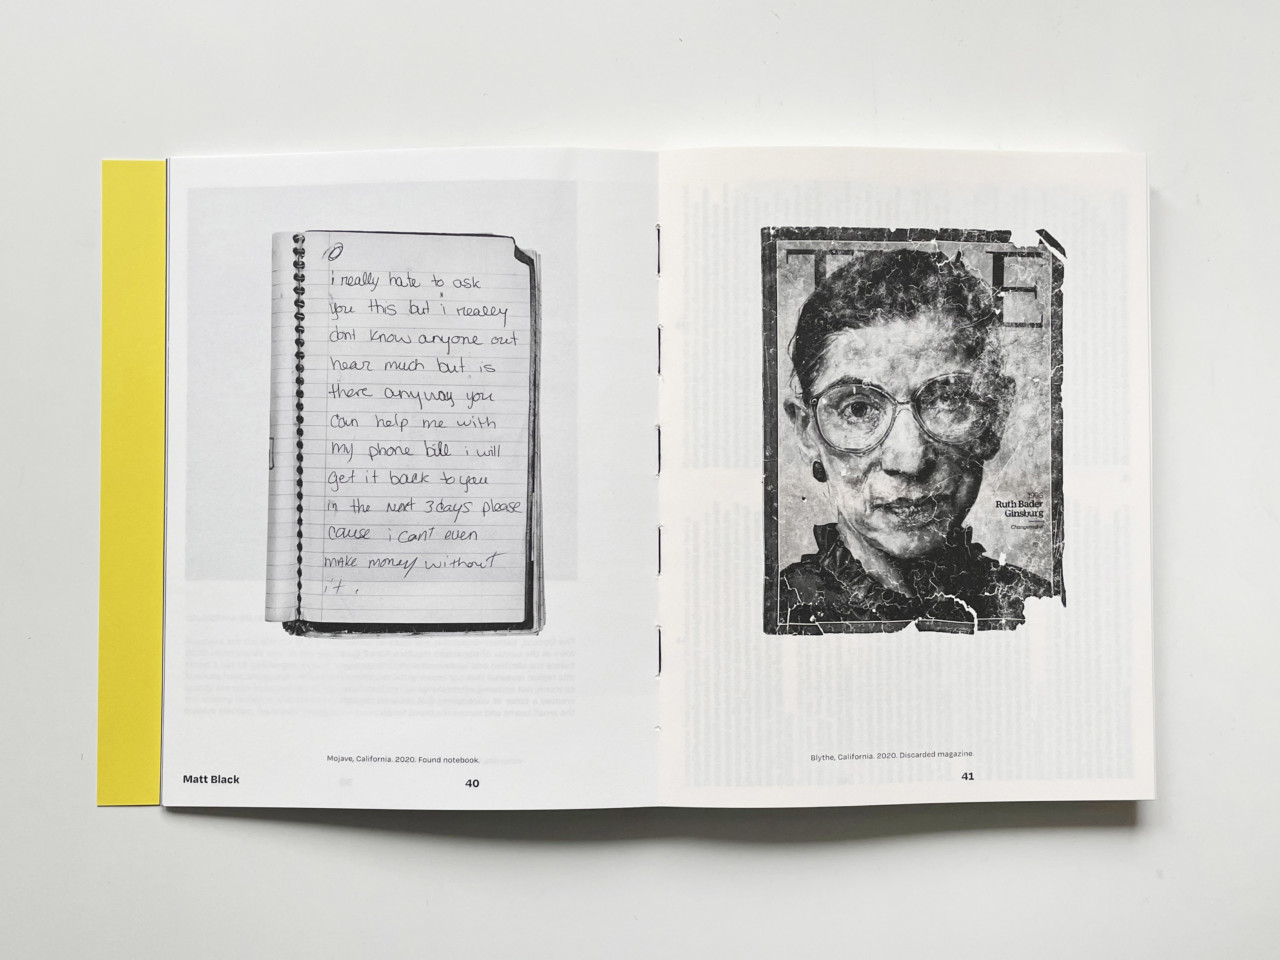 i really hate to ask
you this but i really
dont know anyone out
hear much but is
there anyway you
can help me with
my phone bill i will
get it back to you
in the next 3 days please
cause i can't even
make money without
it.
Mojave, California. 2020. Found notebook.
Matt Black
40
T E
1996
Ruth Bader
Ginsburg
Blythe, California. 2020. Discarded magazine.
41